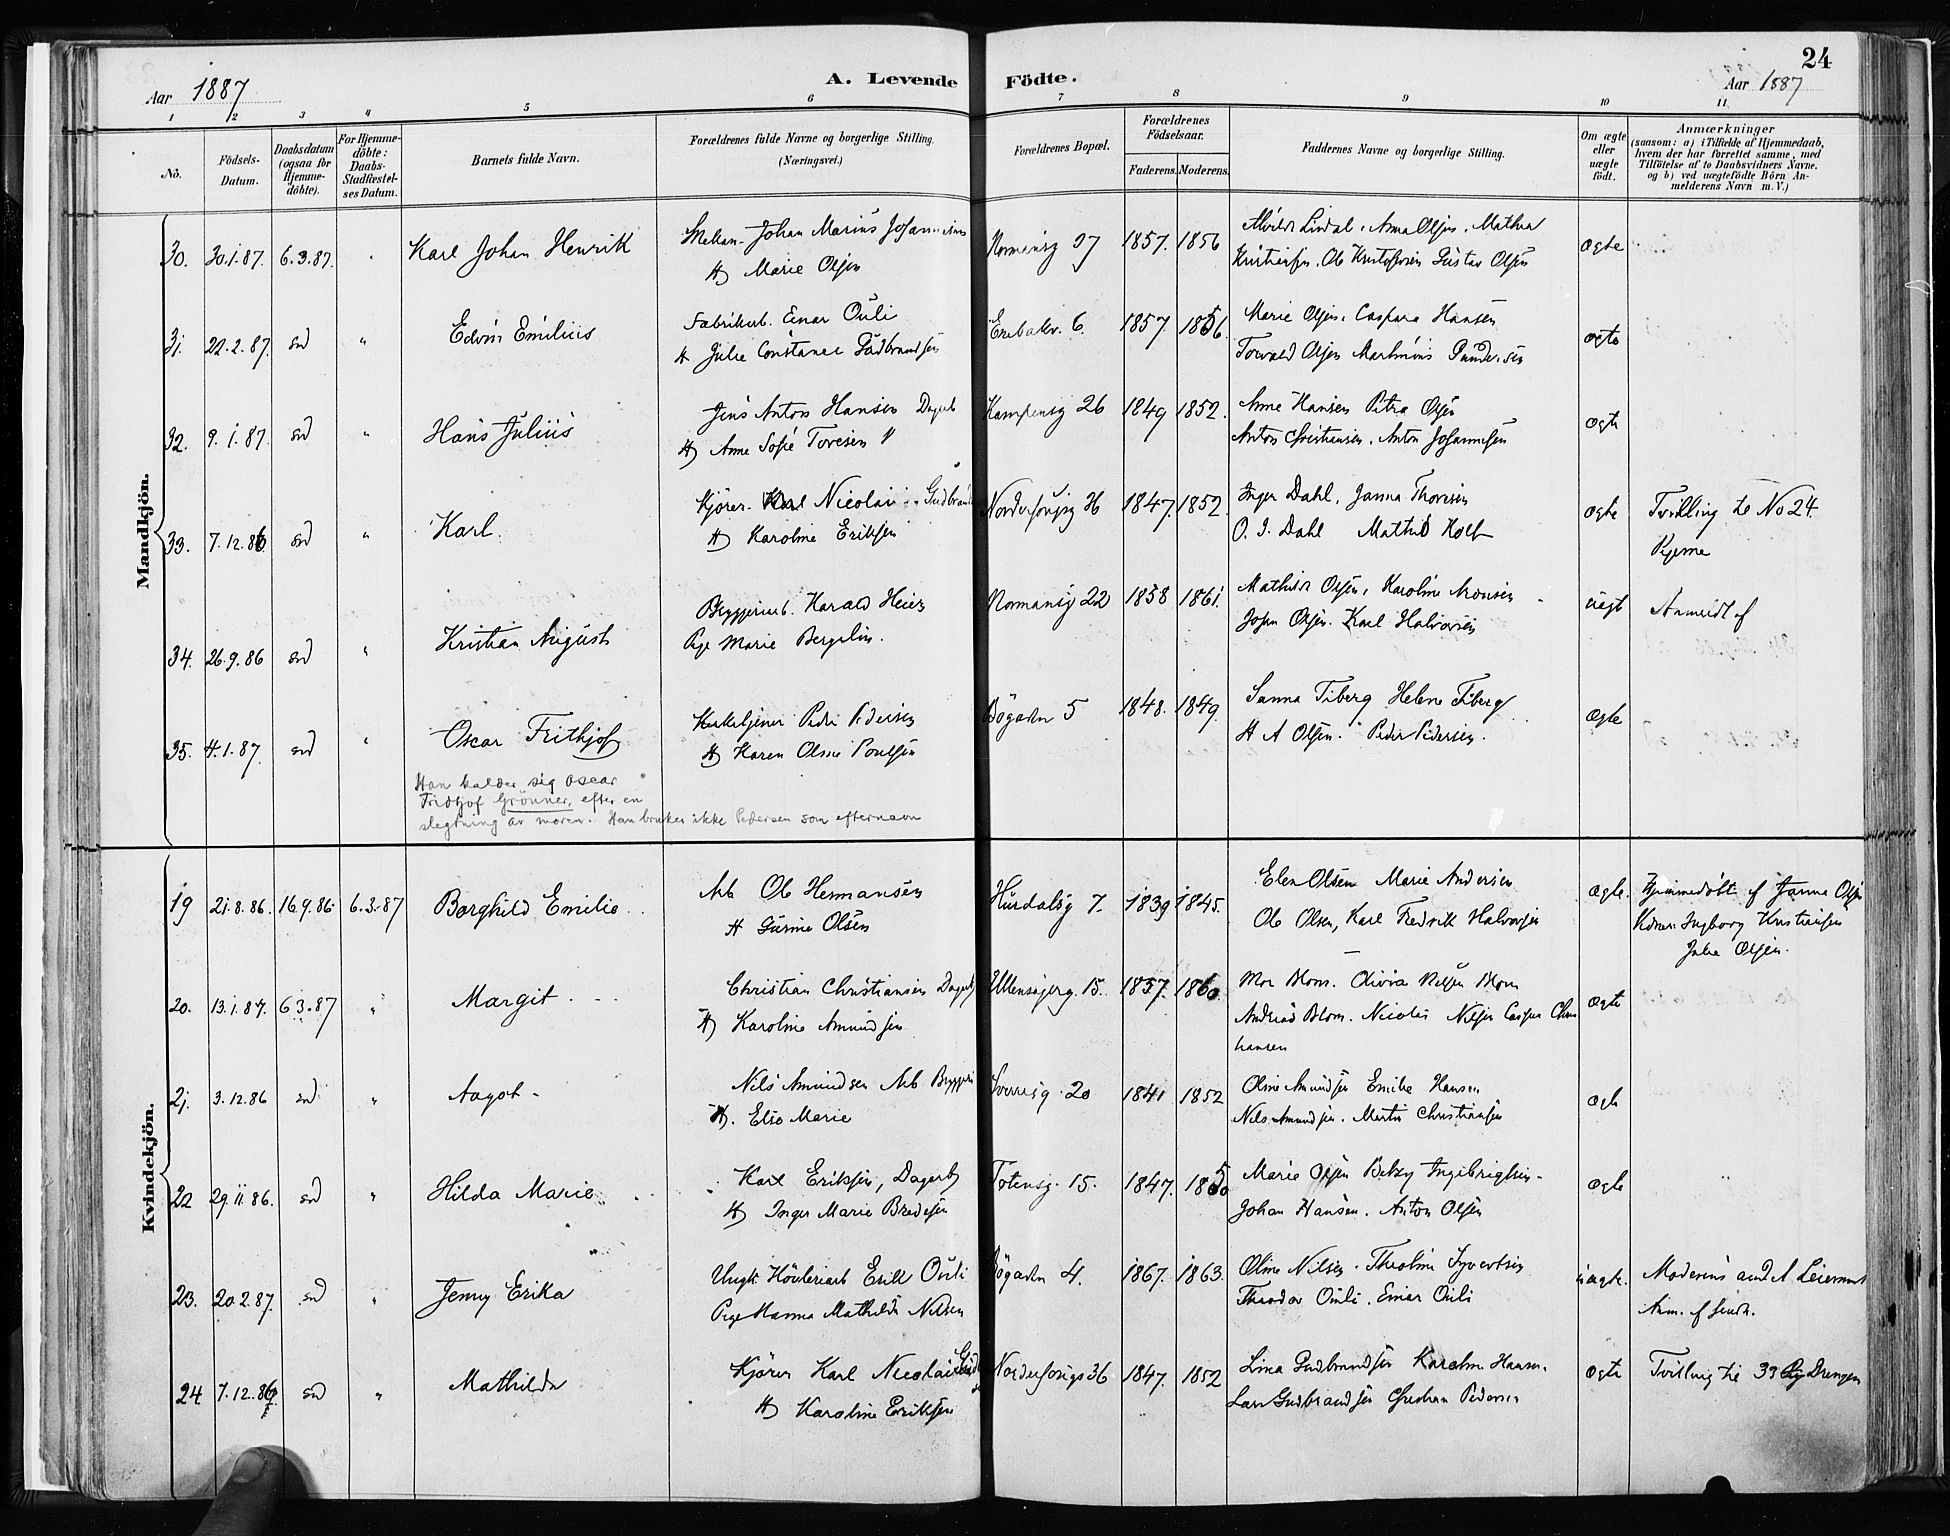 24
Aar 1887
A. Levende Födte.
Aar 1887
1 2 3 4 5 6 7 8 9 10 11
No.
Födsels-Datum.
Daabsdatum (ogsaa for Hjemme-döbte).
For Hjemme-döbte: Daabs-Stadfæstel-ses Datum.
Barnets fulde Navn.
Forældrenes fulde Navne og borgerlige Stilling. (Næringsvei.)
Forældrenes Bopæl.
Forældrenes Födselsaar.
Faderens. Moderens.
Faddernes Navne og borgerlige Stilling.
Om ægte eller uægte födt.
Anmærkninger
(saasom: a) i Tilfælde af Hjemmedaab, hvem der har forrettet samme, med Tilföielse af to Daabsvidners Navne. og b) ved uægtefödte Börn An-melderens Navn m. V.)
Mandkjön.
30. 30.1.87. 6.3.87. Karl Johan Henrik Johan Marius Johannesen 37 1857. 1856 Lindal, Anna Olsen, Mathea ægte
H Marie Olsen Gustav Olsen
31. 22.2.87. sd " Edvin Emilius Fabrikarb. Einar Ouli 6. 1857. 1856. Marie Olsen, Caspara Hansen ægte
H Julie Constance Gudbrandsen Torvald Olsen
32. 9.1.87. sd " Hans Julius Jens Anton Hansen Dagarb Kampensg 26 1849 1852. Anne Hansen Petra Olsen ægte
H Anne Sofie Toresen " Anton Christiansen, Anton Johannesen
33. 7.12.86 sd " Karl. Kjörer. Karl Nicolai Gudbrand 36 1847. 1852. Inger Dahl, Janna Thoresen ægte Tvilling til No 24.
H Karoline Eriksen O. J. Dahl Mathild Holt Pigerne
34. 26.9.86 sd " Kristian August Bryggeriarb. Harald Heier Normansg 22 1858 1861. Mathilde Olsen, Karoline uægt Anmeldt af
Pige Marie Johan Olsen. Karl Halvorsen
35. 4.1.87. sd " Oscar Frithjof Kirketjener Peder Pedersen Bögaden 5 1848. 1849. Sanna Tiberg Helene Tiberg ægte
H Karen Oline Poulsen H A Olsen. Peder Pedersen.
Han kalder sig Oscar
Fridtjof Grönner, efter en
slegtning av moren. Han bruker ikke Pedersen som efternavn
Kvindekjön.
19 21.8.86. 16.9.86 6.3.87 Borghild Emilie Arb Ole Hermansen Hurdalsg 7. 1839 1845. Elen Olsen Marie Andersen ægte. Hjemmedöbt af Janna Olsen
H Gurine Olsen Ole Olsen, Karl Fredrik Halvorsen Ingborg Kristiansen
Julie Olsen.
20. 13.1.87. 6.3.87 " Margit Christian Christiansen Dagarb Ullensagerg. 15. 1857. 1860. Mor Blom. Olivia Nilsen Blom ægte
H Karoline Amundsen Andreas Blom. Nicolai Nilsen Casper Chris
hansen
21. 3.12.86 sd " Aagot Nils Amundsen Arb Bryggeri Sverresg. 20 1841 1852 Oline Amundsen Emilie Hansen ægte
H. Else Marie Nils Amundsen. Martin Christiansen
22 29.11.86. sd " Hilda Marie Karl Eriksen, Dagarb Totensg. 15. 1847. 1850 Marie Olsen Betzy Ingebrigtsen ægte
H Inger Marie Bredesen Johan Hansen. Anton Olsen
23. 20.2.87. sd " Jenny Erika Ungk Erik Ouli Bögaden 4. 1867. 1863. Oline Nilsen. Theoline Syvertsen uægte. Moderens and
Pige Hanna Mathilde Nilsen Theodor Ouli. Einar Ouli Anm. af
24 7.12.86 sd " Mathilde Kjörer Karl Nicolai Gudb 36 1847. 1852 Lina Gudbrandsen Karoline Hansen. ægte Tvilling til 33 Drengen
H Karoline Eriksen Lars Gudbrandsen Christian Pedersen